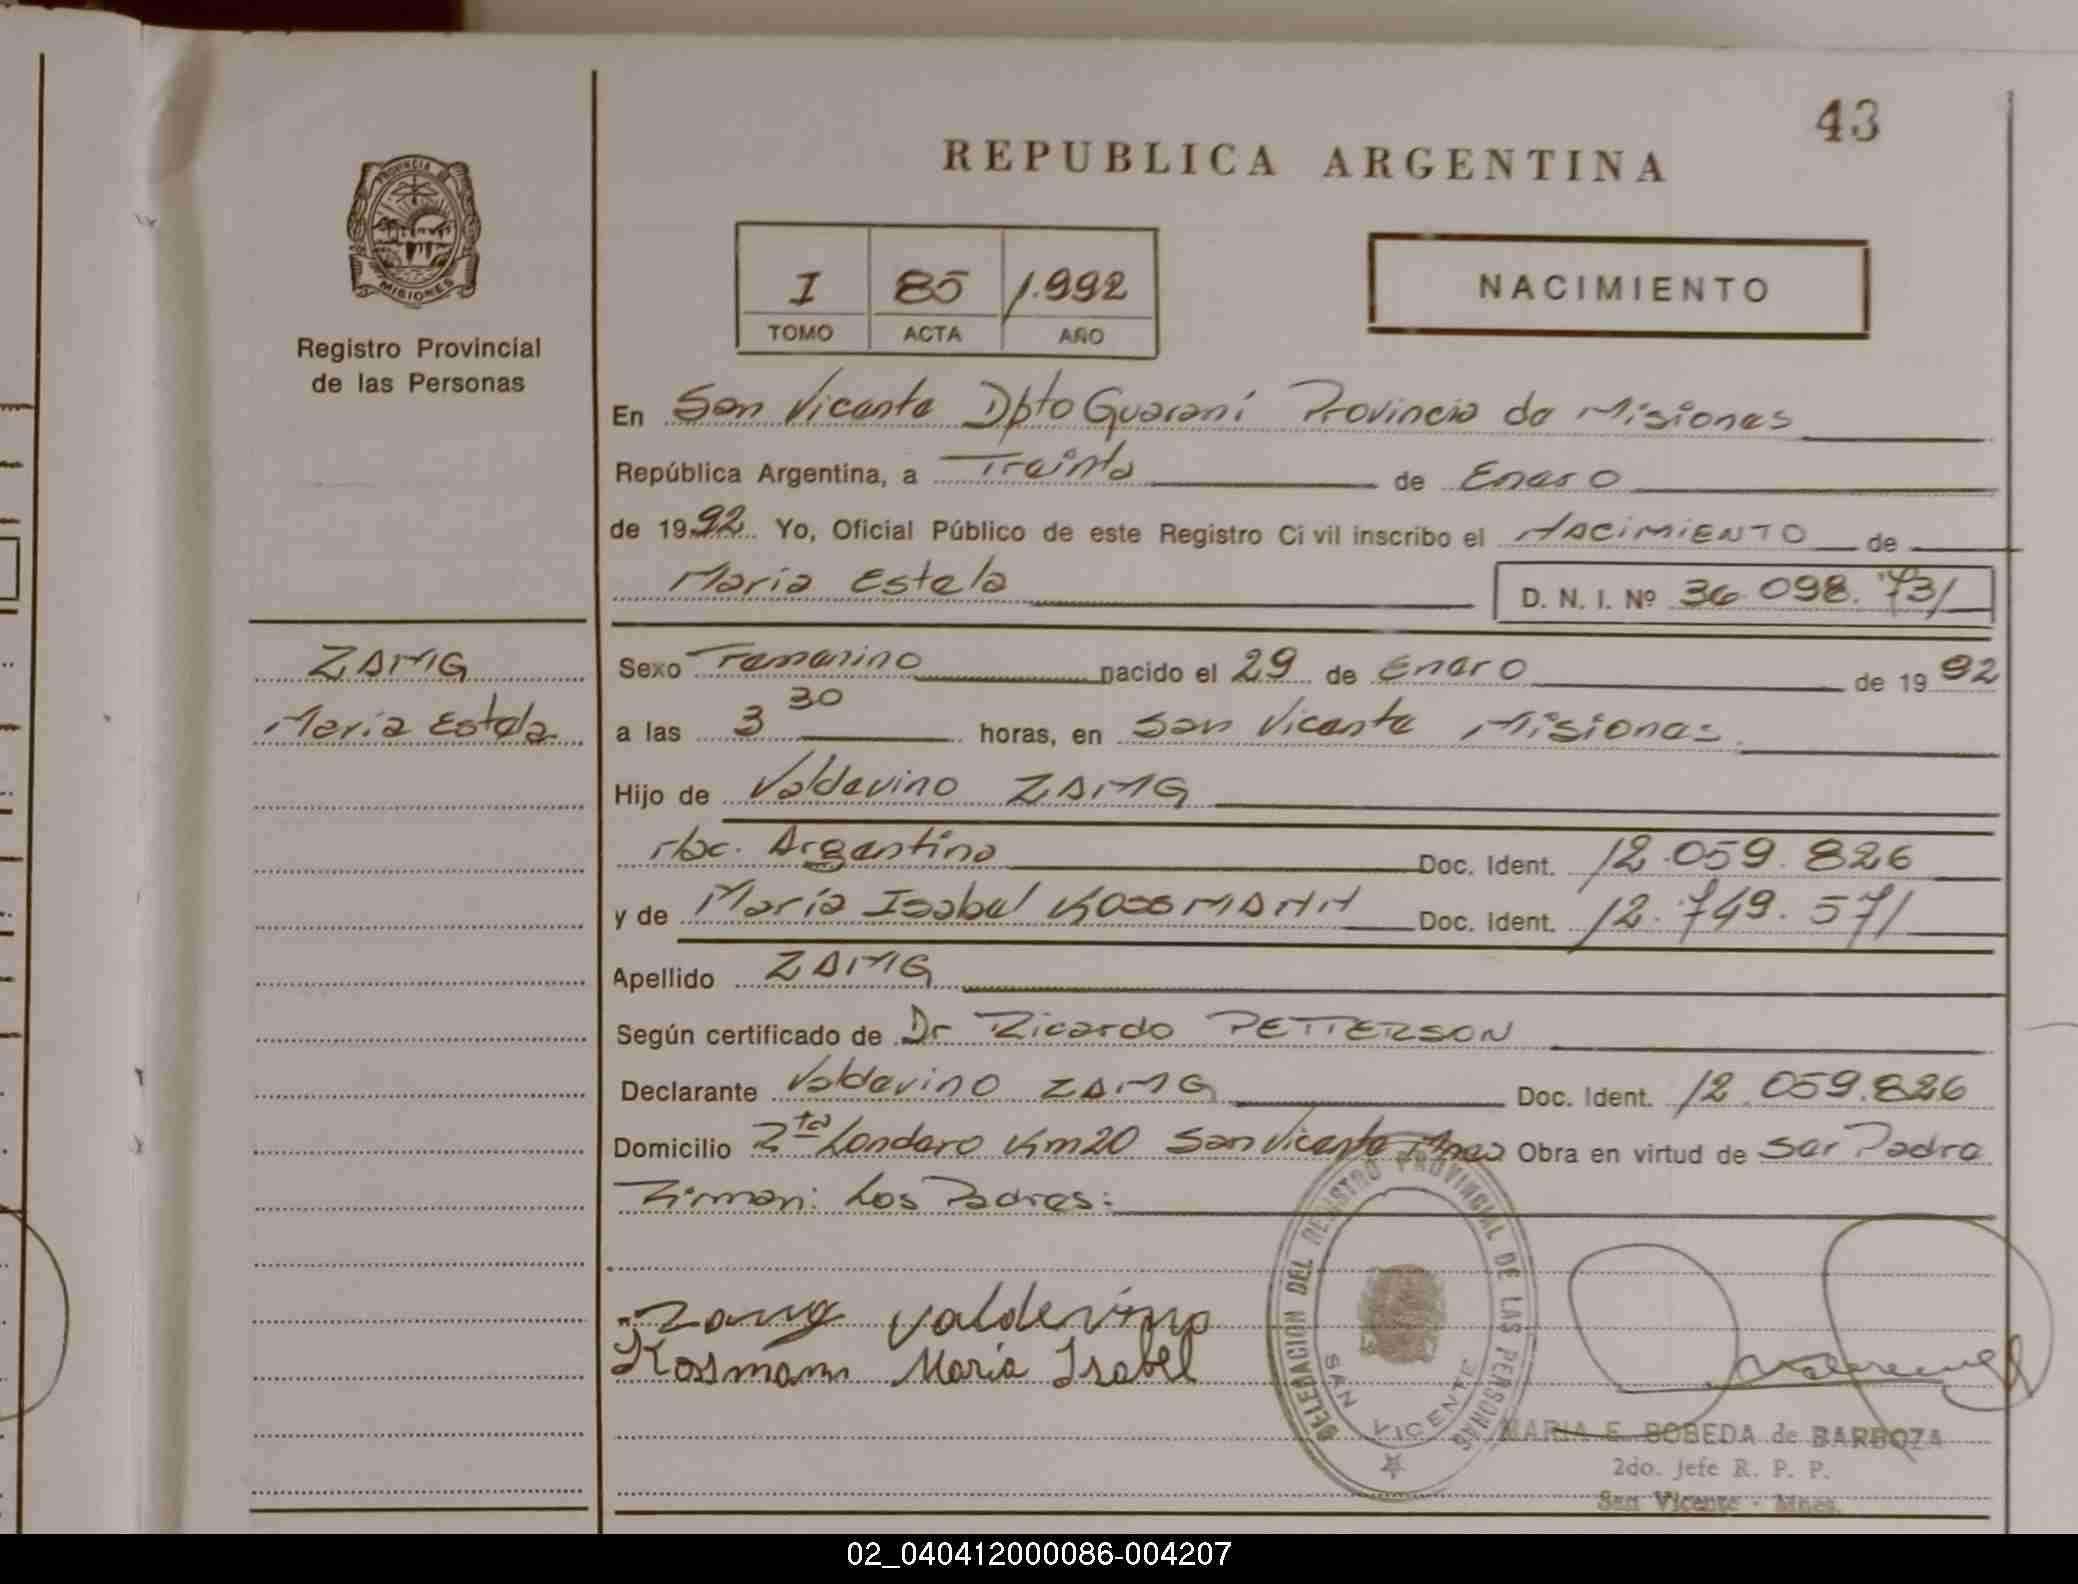 43
REPUBLICA ARGENTINA
PROVINCIA DE
MISIONES
Registro Provincial
de las Personas
I 85 1.992
TOMO ACTA AÑO
NACIMIENTO
En San Vicente Dpto Guaraní Provincia de Misiones
República Argentina, a Treinta de Enero
de 1992. Yo, Oficial Público de este Registro Civil inscribo el NACIMIENTO de
María Estela D. N. I. Nº 36.098.731
ZANG
María Estela
Sexo Femenino nacido el 29 de Enero de 1992
a las 3 30 horas, en San Vicente Misiones
Hijo de Valdevino ZANG
Nac. Argentina Doc. Ident. 12.059.826
y de María Isabel KOSSMANN Doc. Ident. 12.749.571
Apellido ZANG
Según certificado de Dr Ricardo PETTERSON
Declarante Valdevino ZANG Doc. Ident. 12.059.826
Domicilio Londero Km20 San Vicente Mnes Obra en virtud de Ser Padre
Firman: Los Padres:
Zang Valdevino
Kossmann Maria Isabel
DELEGACION DEL REGISTRO PROVINCIAL DE LAS PERSONAS
SAN VICENTE
MARIA E. BOBEDA de BARBOZA
2do. Jefe R. P. P.
San Vicente - Mnes.
02_040412000086-004207